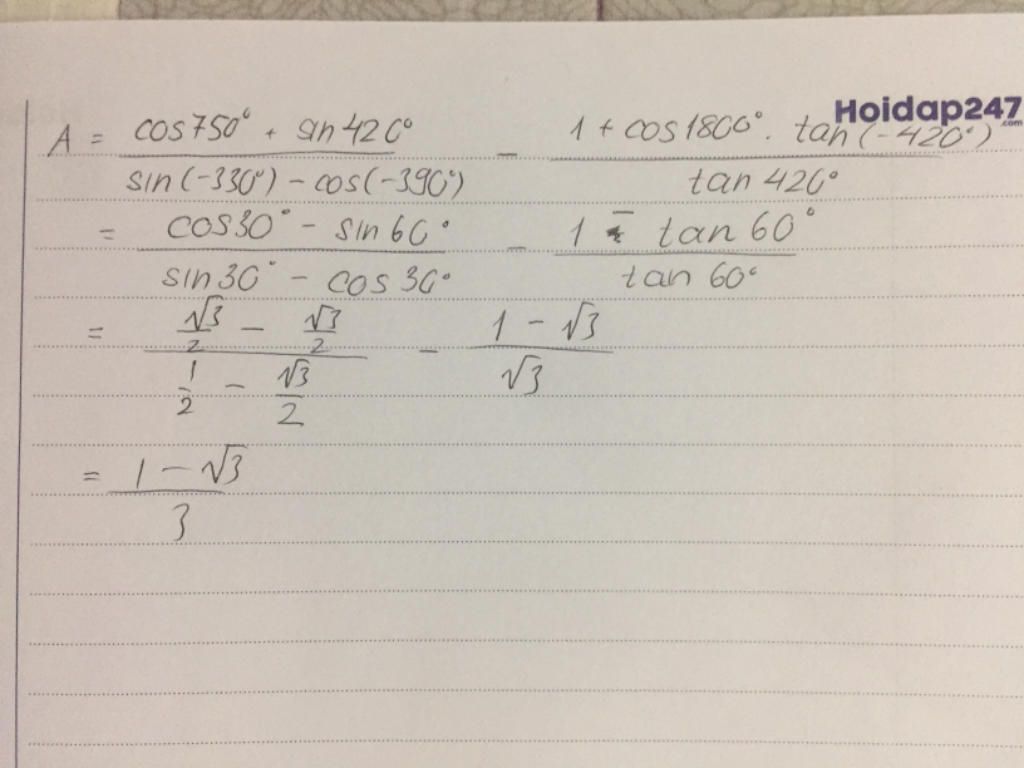 Hoidap247
.com
A = \frac{cos750° + sin420°}{sin(-330°) - cos(-390°)} - \frac{1 + cos1800° . tan(-420°)}{tan420°}
= \frac{cos30° - sin60°}{sin30° - cos30°} - \frac{1 - tan60°}{tan60°}
= \frac{\frac{√3}{2} - \frac{√3}{2}}{\frac{1}{2} - \frac{√3}{2}} - \frac{1 - √3}{√3}
= \frac{1 - √3}{3}